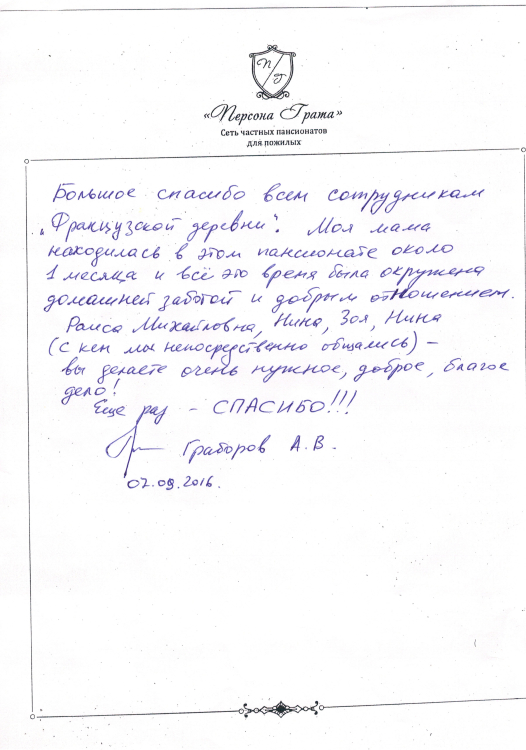 П Г
«Персона Грата»
Сеть частных пансионатов
для пожилых
Большое спасибо всем сотрудникам
„Французской деревни". Моя мама
находилась в этом пансионате около
1 месяца и всё это время была окружена
домашней заботой и добрым отношением.
Раиса Михайловна, Нина, Зоя, Нина
(с кем мы непосредственно общались) –
вы делаете очень нужное, доброе, благое
дело!
Еще раз – СПАСИБО!!!
Граборов А.В.
07.09.2016.